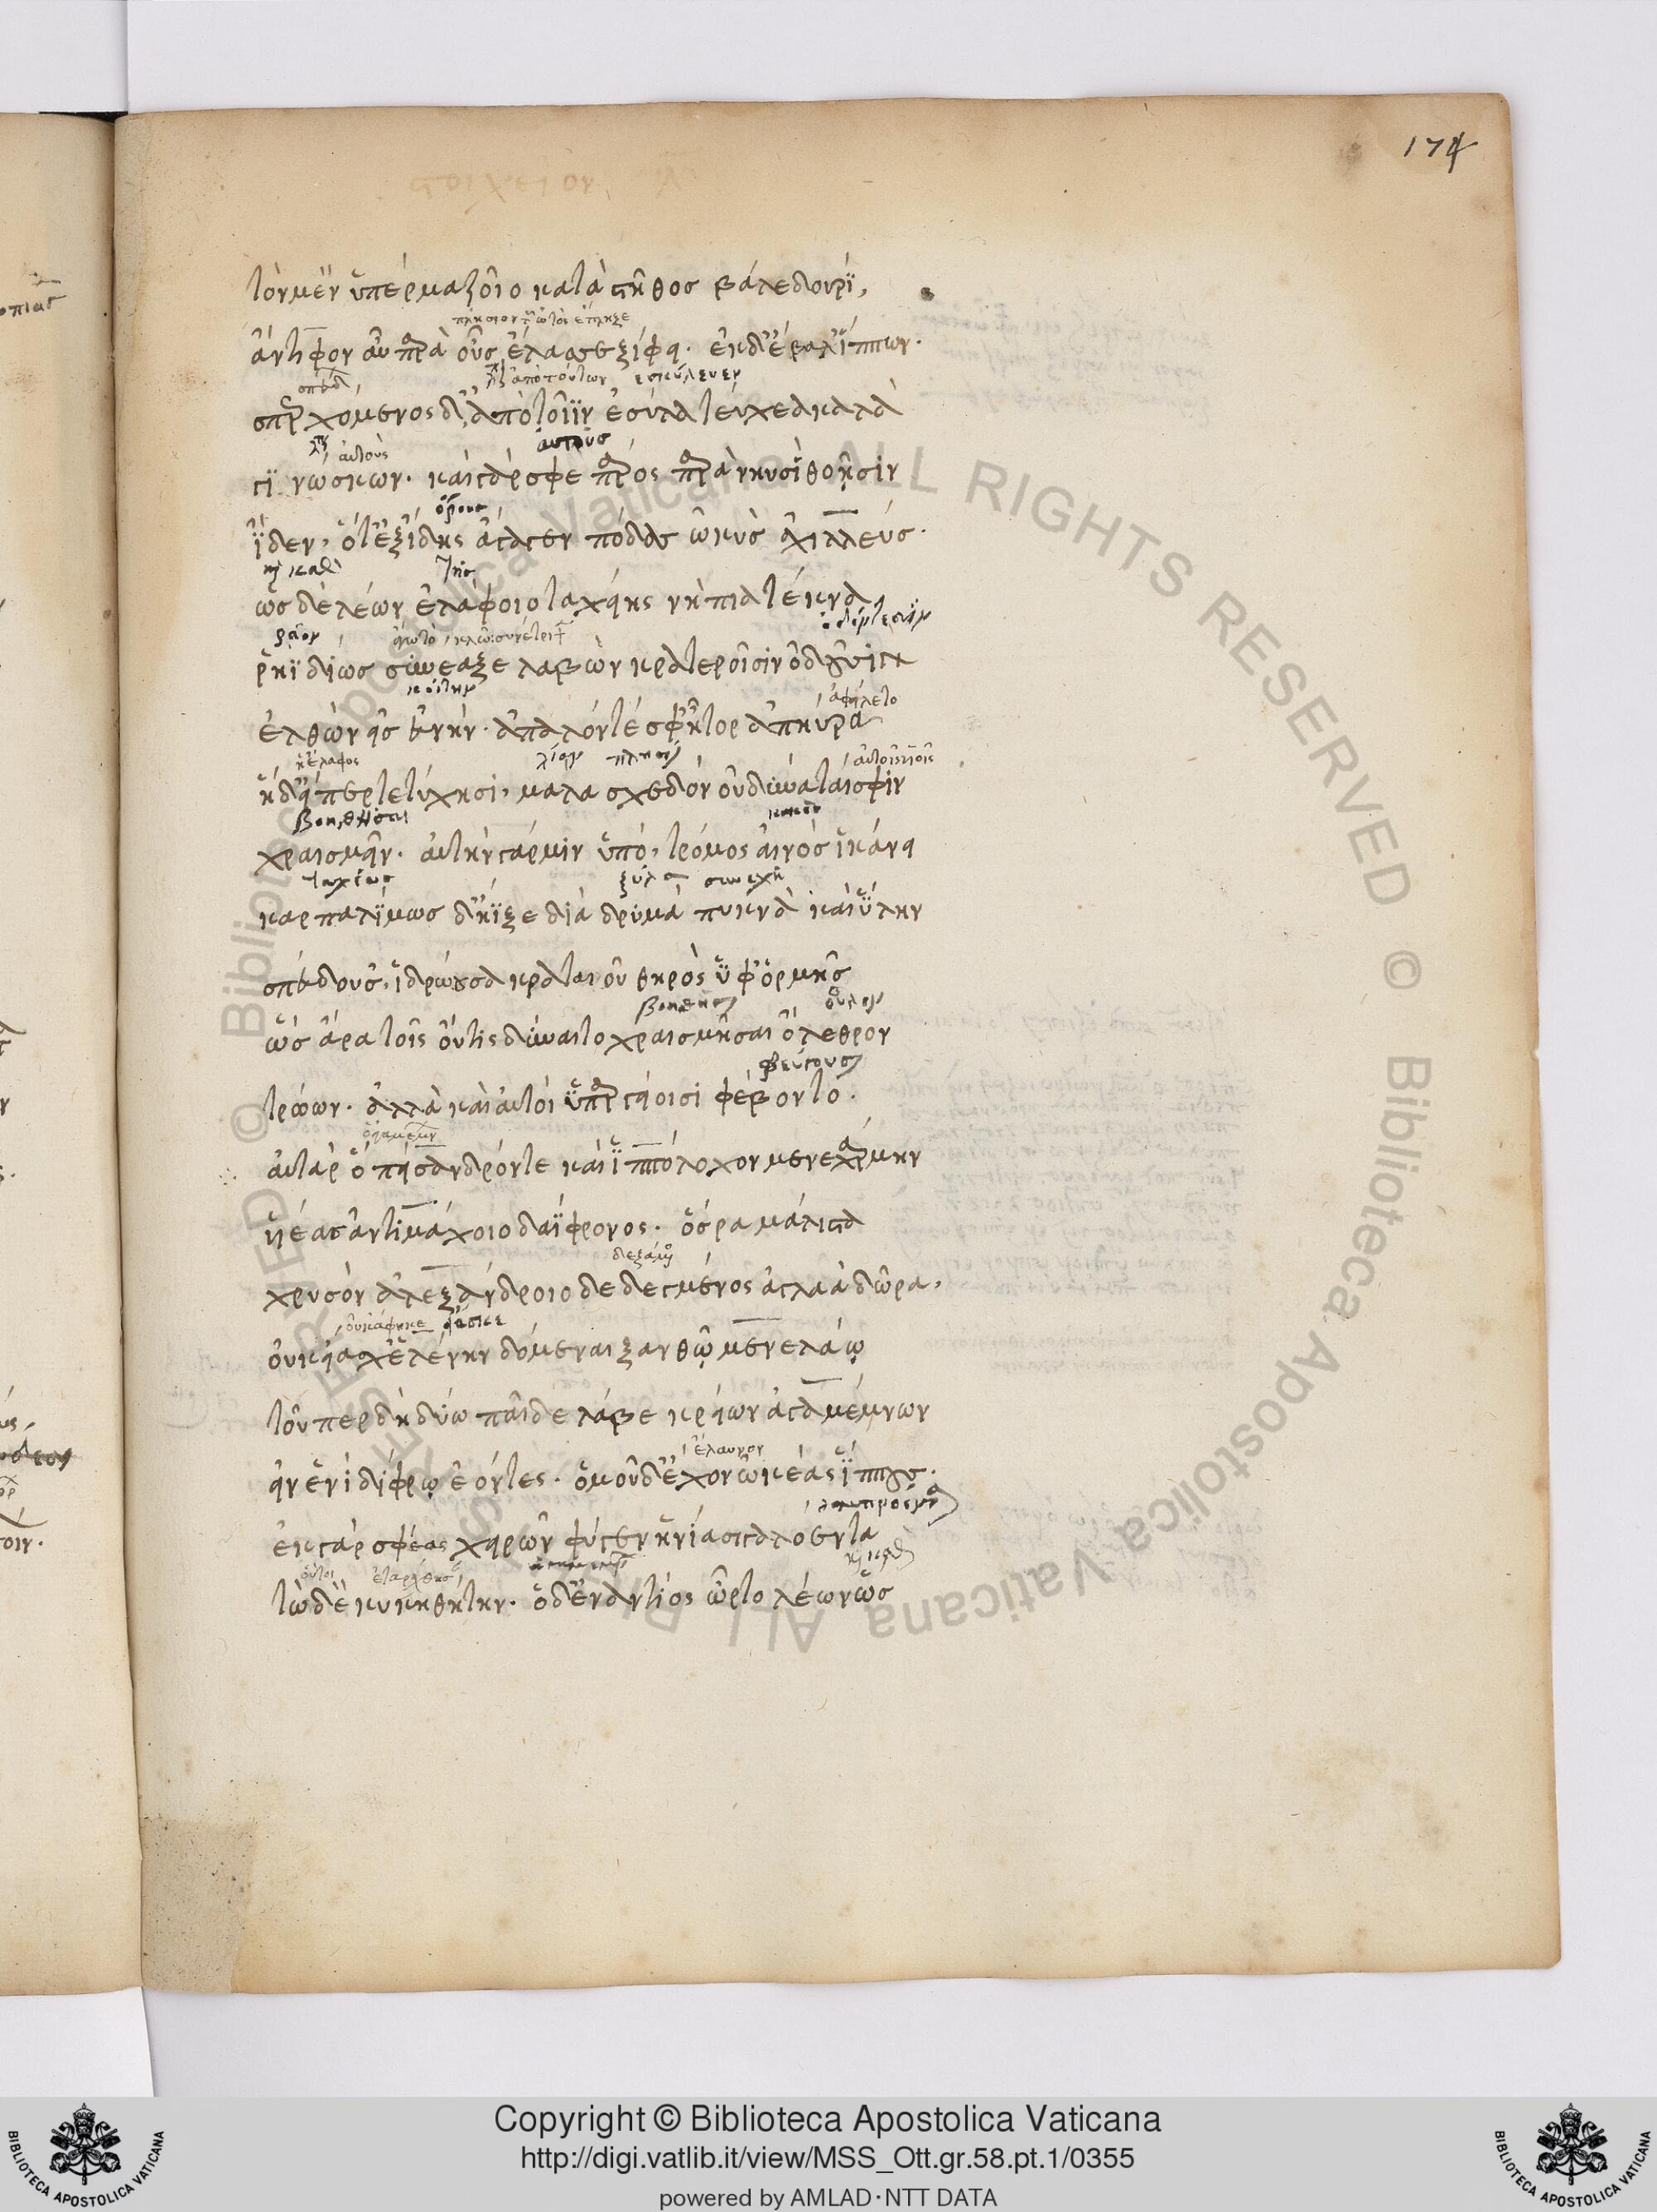 174
τὸν μὲν ὑπὲρ μαζοῖο κατὰ στῆθος βάλε δουρί,
πλησίον τοῦ ὠτὸς ἔπληξε
ἄντιφον αὖ παρὰ οὖς ἔλασε ξίφει· ἐκ δ' ἔβαλ' ἵππων·
ἀπὸ τούτων ἐσκύλευεν
σπερχόμενος δ' ἀπὸ τοῖιν ἐσύλα τεύχεα καλὰ
αὐτοὺς αὐτοὺς
γινώσκων· καὶ γάρ σφε πάρος παρὰ νηυσὶ θοῇσιν
ὄρους
ἴδεν, ὅτ' ἐξ ἴδης ἄγαγεν πόδας ὠκὺς ἀχιλλεύς·
τῆς
ὡς δὲ λέων ἐλάφοιο ταχείης νήπια τέκνα,
ῥᾷον
ῥηϊδίως συνέαξε λαβὼν κρατεροῖσιν ὀδοῦσιν
κοίτην ἀφείλετο
ἐλθὼν εἰς εὐνήν· ἁπαλόν τέ σφ' ἦτορ ἀπηύρα
ἡ ἔλαφος λίαν πλησίον αὐτοῖς
ἡ δ' εἴπερ τε τύχησι, μάλα σχεδὸν οὐ δύναταί σφιν
βοηθῆσαι κακὸν
χραισμεῖν· αὐτὴν γάρ μιν ὑπὸ, τρόμος αἰνὸς ἱκάνει
ταχέως ξύλα συνεχῆ
καρπαλίμως δ' ἤϊξε διὰ δρυμὰ πυκνὰ καὶ ὕλην
σπεύδουσ', ἱδρώουσα κραταιοῦ θηρὸς ὑφ' ὁρμῆς
βοηθῆσαι
ὣς ἄρα τοῖς οὔτις δύνατο χραισμῆσαι ὄλεθρον
φεύγουσιν
τρώων· ἀλλὰ καὶ αὐτοὶ ὑπ' ἀργείοισι φέβοντο·
αὐτὰρ ὁ πείσανδρόν τε καὶ ἱππόλοχον μενεχάρμην
υἱέας ἀντιμάχοιο δαΐφρονος· ὅς ῥα μάλιστα
δεξάμενος
χρυσὸν ἀλεξάνδροιο δεδεγμένος ἀγλαὰ δῶρα,
οὐκ ἀφῆκε
οὐκ εἴασχ' ἑλένην δόμεναι ξανθῷ μενελάῳ
τοῦ περ δὴ δύω παῖδε λάβε κρείων ἀγαμέμνων
ἔλαυνον
εἰν ἑνὶ δίφρῳ ἐόντες· ὁμοῦ δ' ἔχον ὠκέας ἵππους·
ἐκ γάρ σφεας χειρῶν φύγεν ἡνία σιγαλόεντα
οὗτοι ἐταράχθησαν
τὼ δὲ κυκηθήτην· ὁ δ' ἐναντίος ὦρτο λέων ὣς
Copyright © Biblioteca Apostolica Vaticana
http://digi.vatlib.it/view/MSS_Ott.gr.58.pt.1/0355
powered by AMLAD·NTT DATA